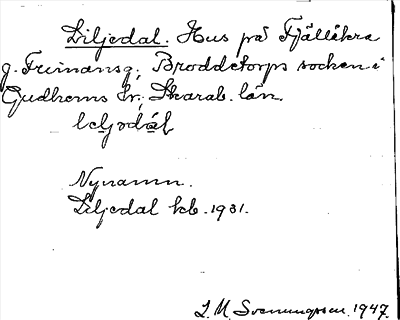 Liljedal. Hus på Fjällåkra
g. Frimansg., Broddetorps socken i
Gudhems hr., Skarab. län.
Nynamn.
Liljedal kb. 1931.
L. M. Svenungsson. 1947.